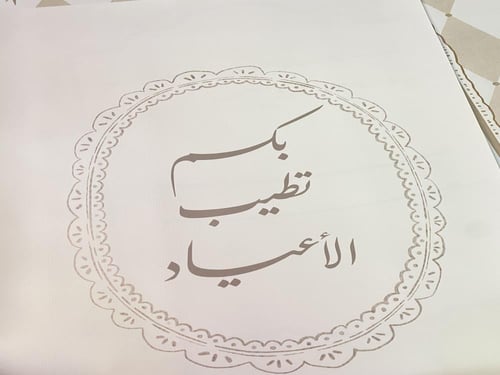 بكم
تطيب
الأعياد